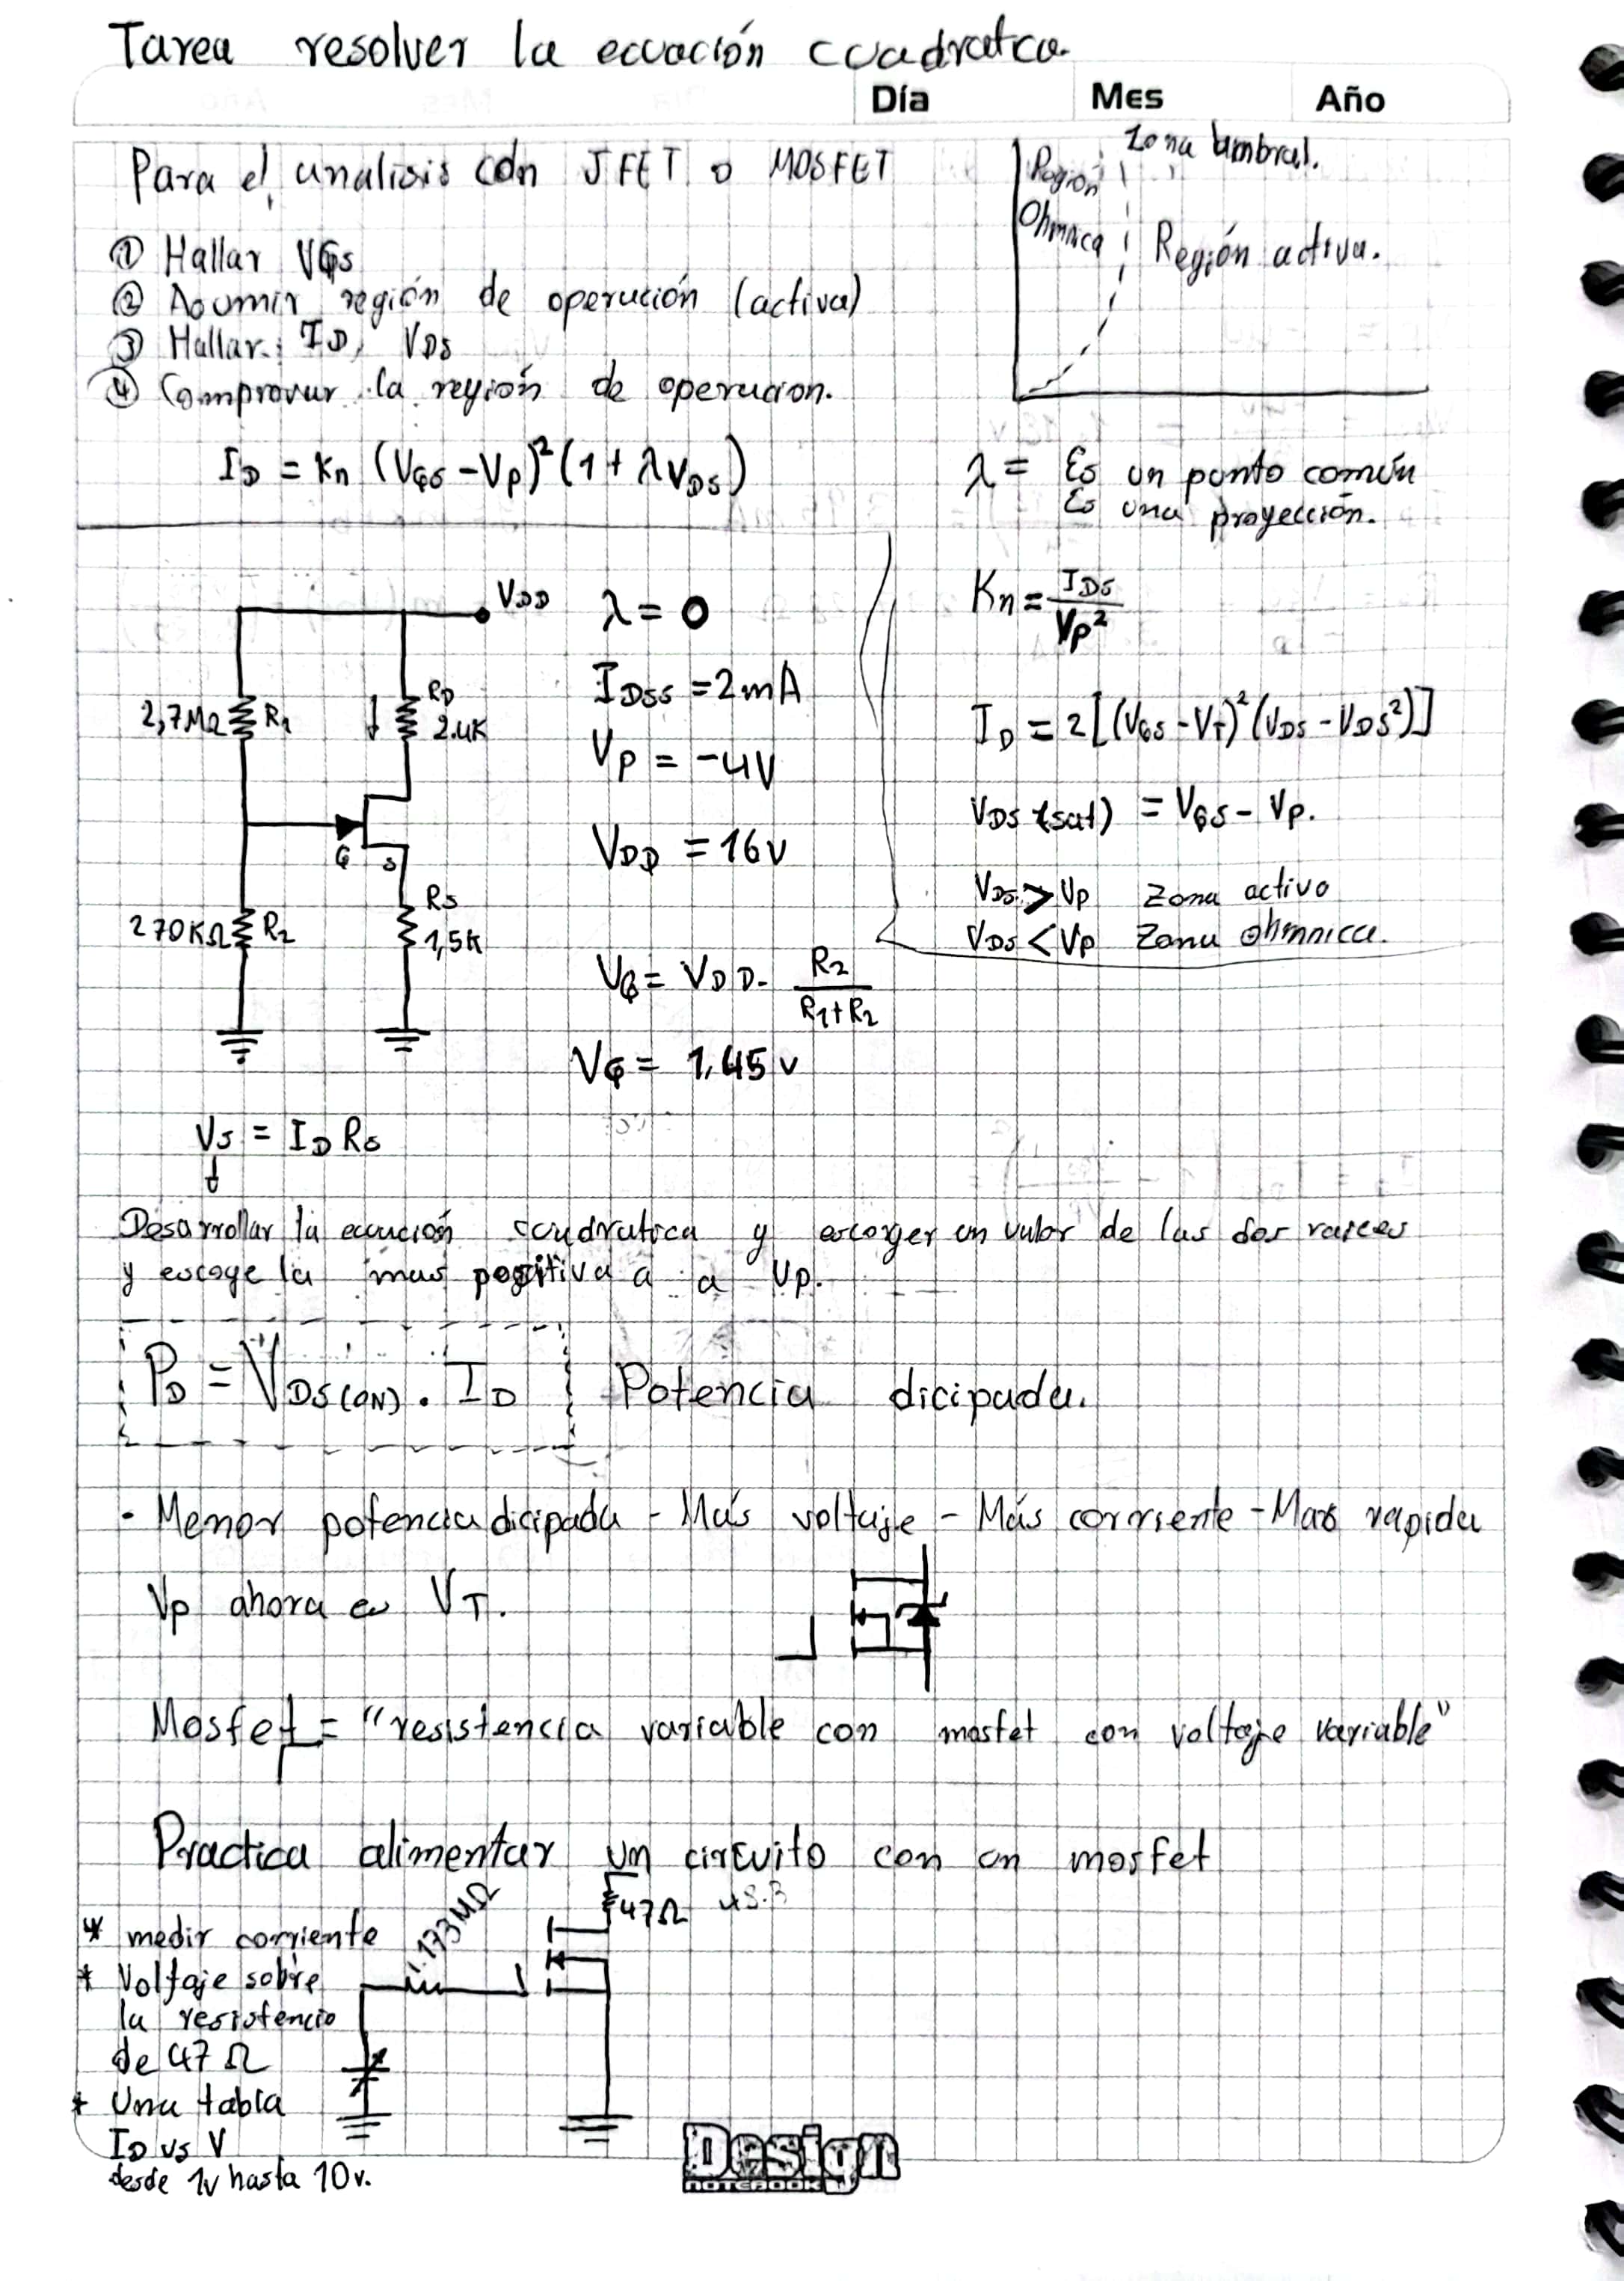 Tarea resolver la ecuación cuadratca.
Día Mes Año
Para el analisis con JFET o MOSFET
① Hallar VGS
② Asumir región de operación (activa)
③ Hallar: ID, VDS
④ Comprovar la región de operacion.
Zona Umbral.
Región
Ohmnica
Región activa.
ID = Kn (VGS - VP)² (1 + λVDS)
λ = Es un ponto común
Es una proyección.
VDD
λ = 0
IDSS = 2mA
VP = -4V
VDD = 16V
2,7MΩ R1
RD
2.4K
G S
270KΩ R2
RS
1,5K
Kn = IDS / VP²
ID = 2[(VGS - VT)² (VDS - VDS²)]
VDS (sat) = VGS - VP.
VDS > VP Zona activo
VDS < VP Zona ohmnica.
VG = VDD. R2 / R1+R2
VG = 1,45 v
VS = ID RS
↓
Desarrollar la ecuación cuadratica y escorger un valor de las dos raices
y escoge la mas positiva a a VP.
PD = VDS(ON) . ID Potencia dicipada.
- Menor potencia dicipada - Más voltaje - Más corriente - Mas rapida
Vp ahora es VT.
Mosfet = "resistencia variable con mosfet con voltaje variable"
Practica alimentar un circuito con un mosfet
47Ω
* medir corriente
* Voltaje sobre
la resistencio
de 47 Ω
* Una tabla
ID vs V
desde 1v hasta 10v.
Design
NOTEBOOK